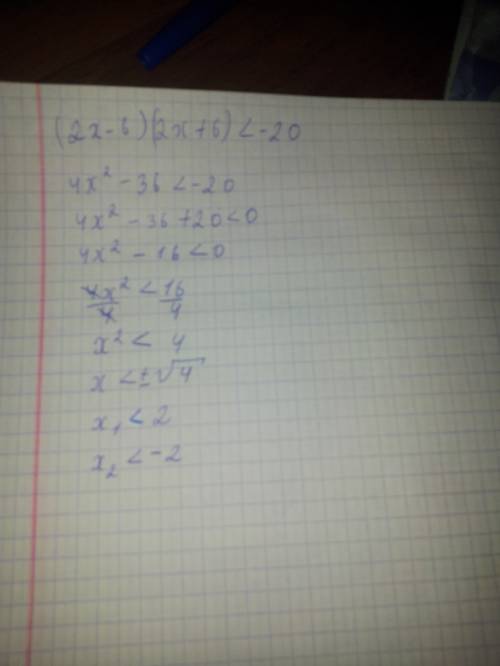 (2x-6)(2x+6)<-20
4x² - 36 <-20
4x² - 36 +20<0
4x² - 16 <0
4x²/4 < 16/4
x² < 4
x <±√4
x₁ < 2
x₂ < -2